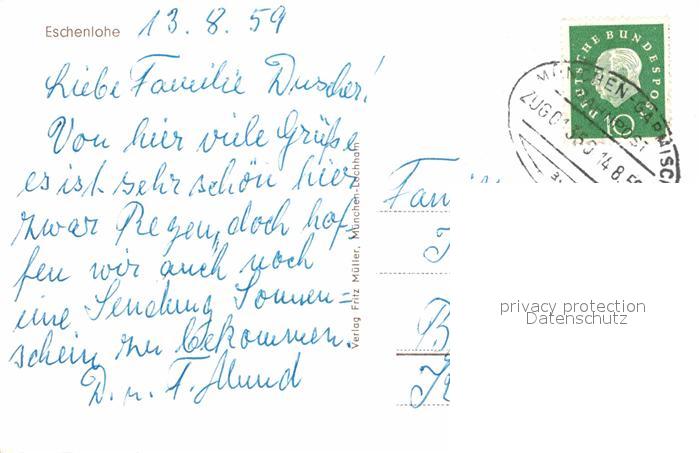 Eschenlohe 13.8.59
Liebe Familie Duscher!
Von hier viele Grüße
es ist sehr schön hier
zwar Regen, doch hof-
fen wir auch noch
eine Sendung Sonnen=
schein zu bekommen.
D. u. F. Mund
Verlag Fritz Müller, München-Lochham
Fami
B
DEUTSCHE BUNDESPOST
10
MÜNCHEN-GARMISCH
BAHNPOST
ZUG 01
14.8.59
privacy protection
Datenschutz